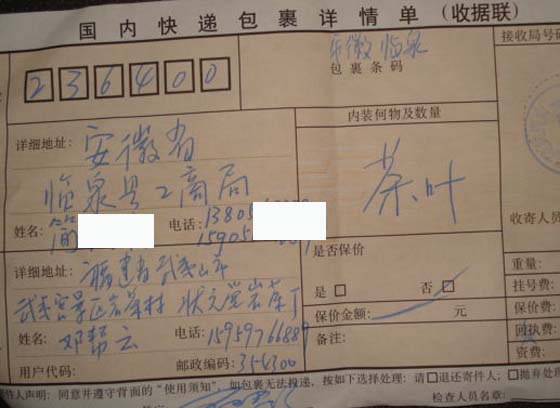 国内快递包裹详情单(收据联)
接收局号码
236400
安徽临泉
包裹条码
内装何物及数量
详细地址: 安徽省
临泉县工商局
茶叶
姓名: 电话: 13805
15905
收寄人员
是否保价
详细地址: 福建省武夷山市
重量:
是 否
挂号费:
保价金额: 元
保价费:
姓名: 邓帮云 电话: 15959766889
备注:
回执费:
用户代码: 邮政编码: 354300
资费:
件人声明: 同意并遵守背面的“使用须知”, 如包裹无法投递, 按如下选择处理: 请 退还寄件人; 抛弃处理
检查人员名章: